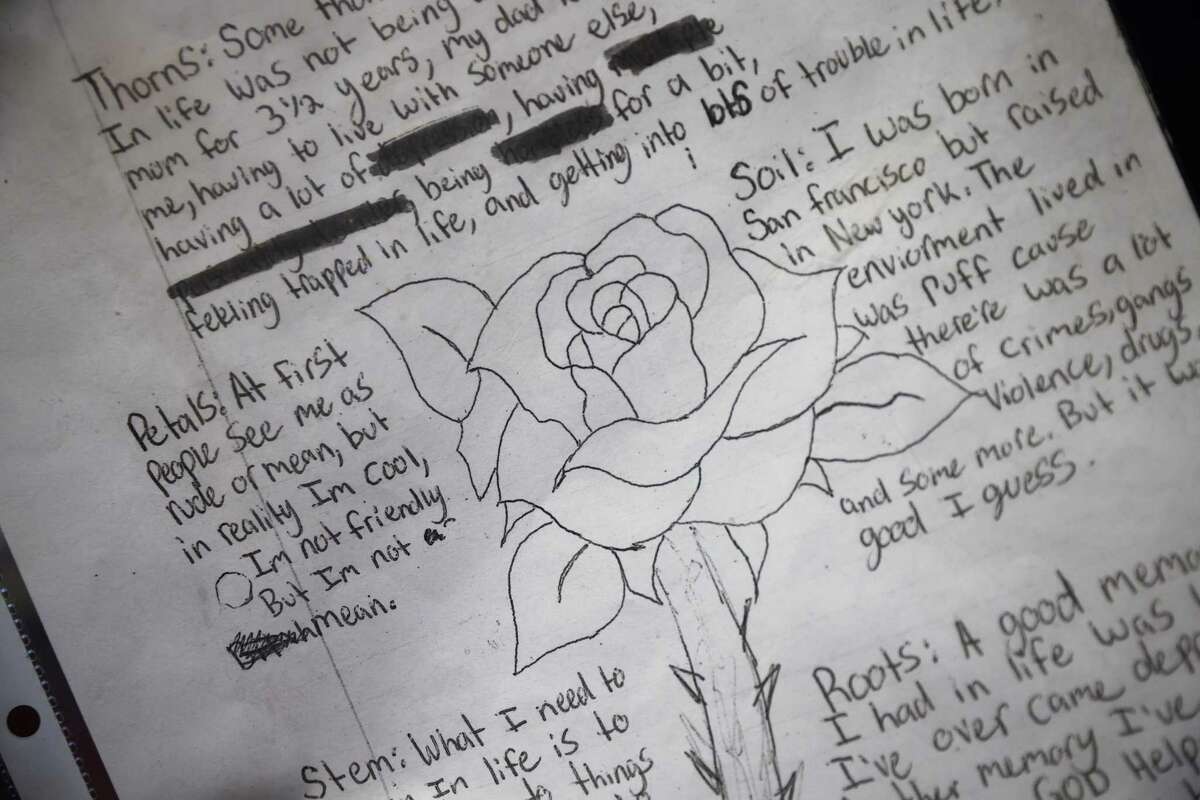 Thorns: Some
In life was not being
mom for 3 1/2 years, my dad
me, having to live with someone else,
having a lot of, having
being for a bit,
fekling trapped in life, and getting into lots of trouble in life,
i
Soil: I was born in
San francisco but raised
in New york. The
enviorment lived in
was Puff cause
there're was a lot
of crimes, gangs
violence, drugs,
and some more. But it
good I guess.
Petals: At first
people see me as
rude or mean, but
in reality Im cool,
Im not friendly
But Im not a
mean.
Stem: What I need to
In life is to
to things
Roots: A good
I had in life was
I've over came
memory I've
GOD Help